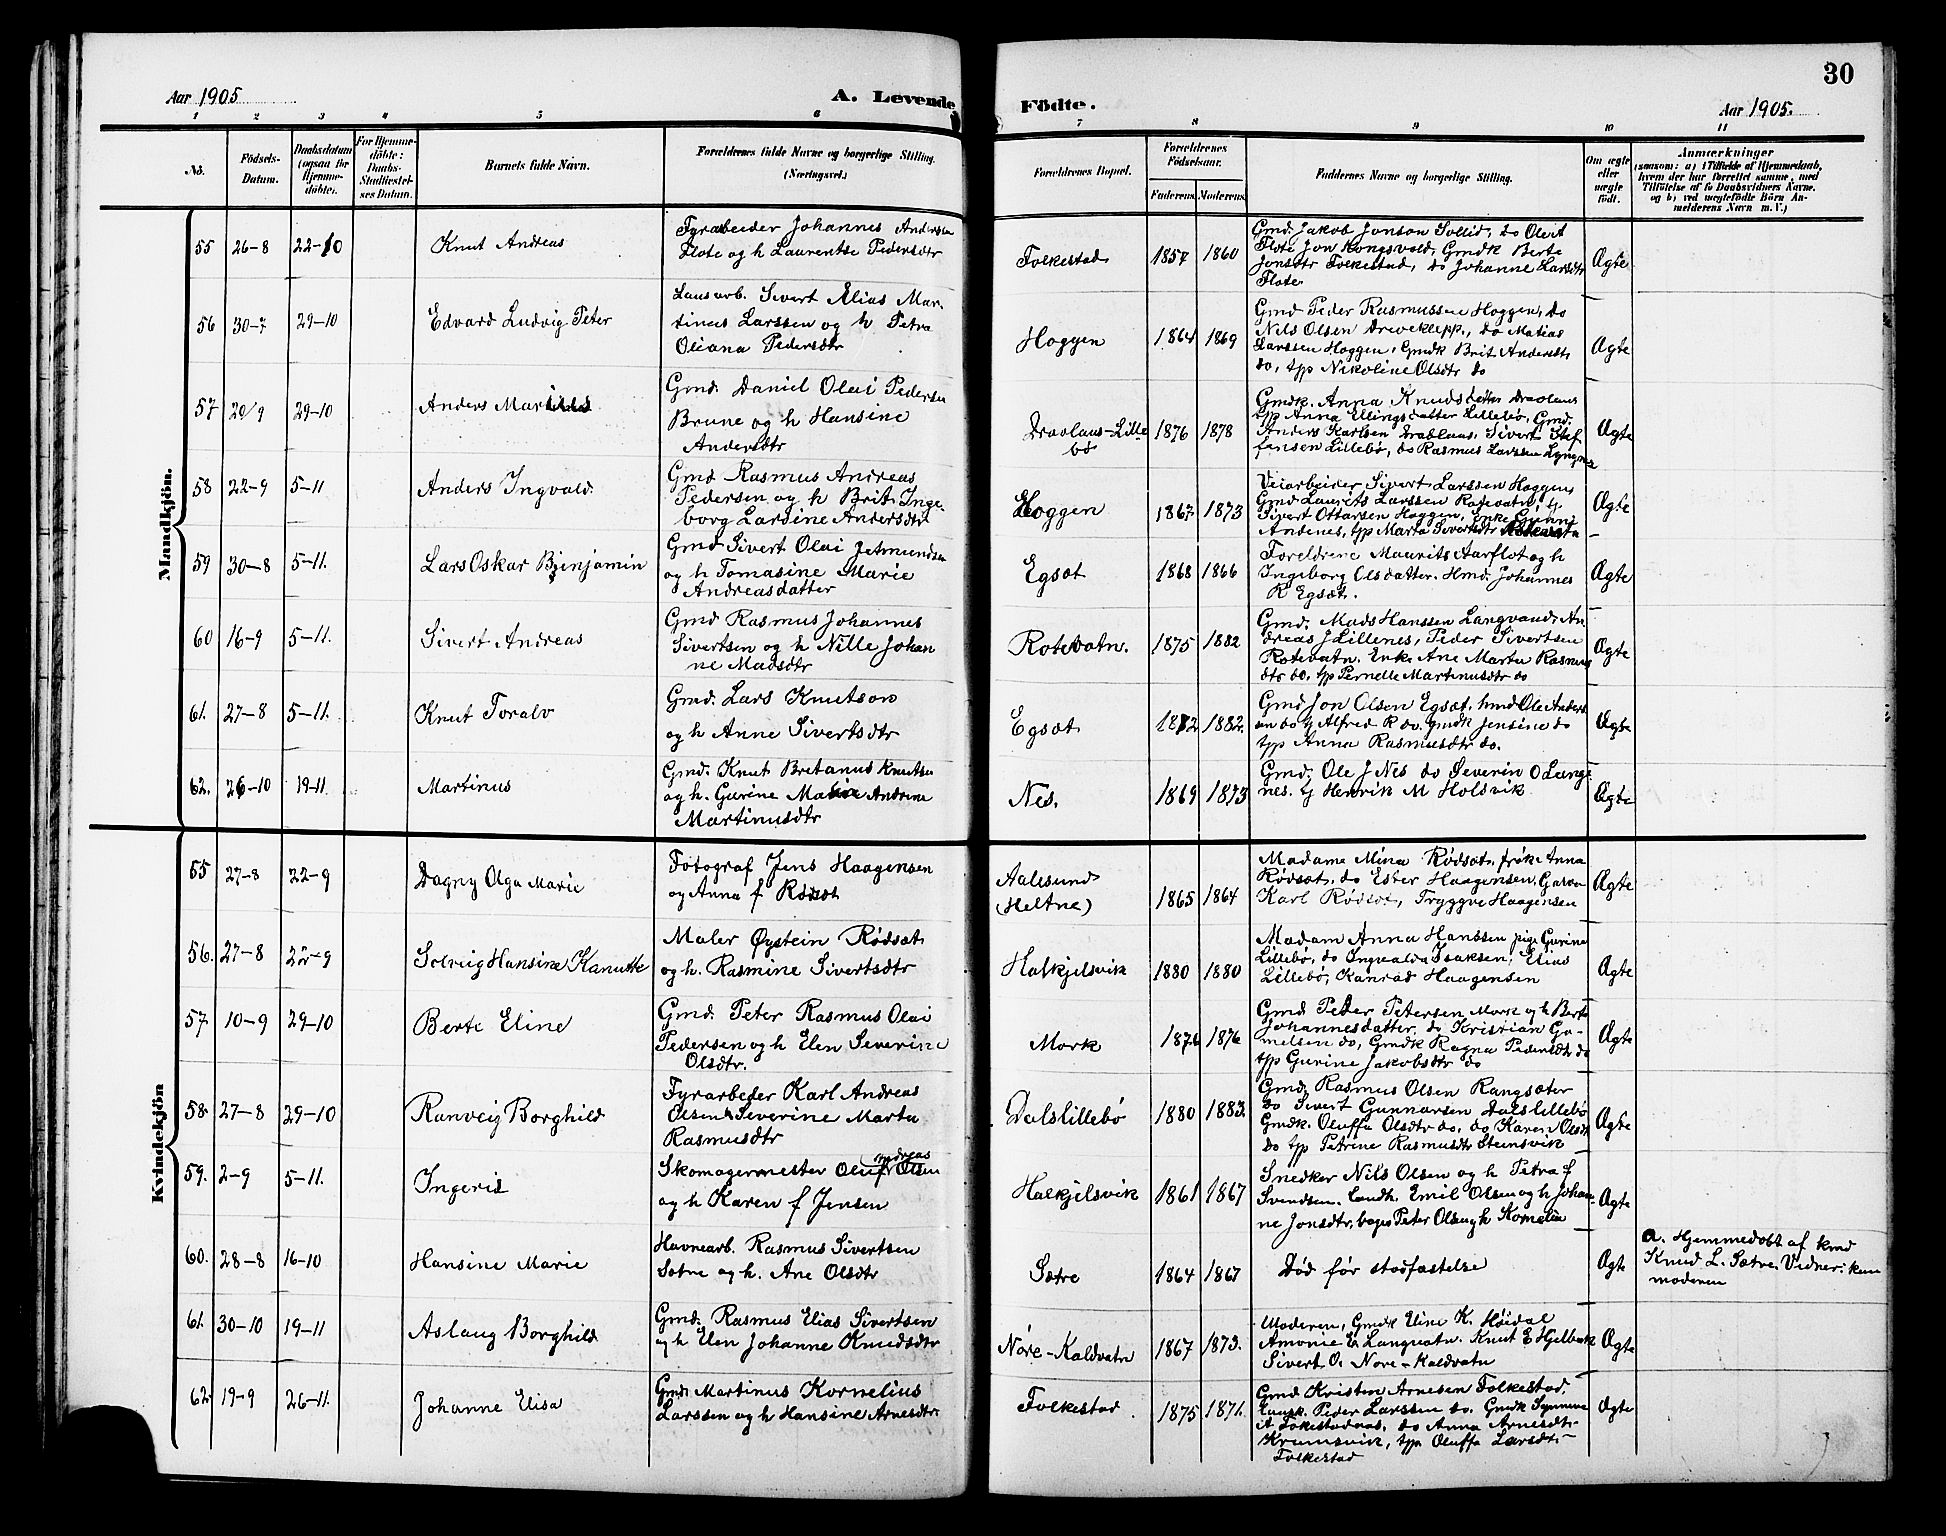 30
Aar 1905
A. Levende
Födte.
Aar 1905.
1 2 3 4 5 6 7 8 9 10 11
No.
Födsels-
Datum.
Daabsdatum
(ogsaa for
Hjemme-
döbte).
For Hjemme-
döbte:
Daabs-
Stadfæstel-
ses Datum.
Barnets fulde Navn.
Forældrenes fulde Navne og borgerlige Stilling.
(Næringsvei.)
Forældrenes Bopæl.
Forældrenes
Födselsaar.
Faderens. Moderens.
Faddernes Navne og borgerlige Stilling.
Om ægte
eller
uægte
födt.
Anmærkninger
(saasom: a) i Tilfælde af Hjemmedaab,
hvem der har forrettet samme, med
Tilföielse af to Daabsvidners Navne.
og b) ved uægtefödte Börn An-
melderens Navn m. V.)
Mandkjön.
55 26-8 22-10
Knut Andreas
Fyrabeider Johannes Anderssen
Flote og h Laurentse Pedersdtr
Folkestad 1857 1860
Gmd. Jakob Jonson Sollid, do Olvit
Flote, Jon Kongsvold, Gmdk Berte
Jonsdtr Folkestad, do Johanne Larsdtr
Flote
Ægte
56 30-7 29-10
Edvard Ludvig Peter
Lausarb. Sivert Elias Mar-
tinus Larssen og h Petra
Oliana Pedersdtr
Hoggen 1864 1869
Gmd Peder Rasmussen Hoggen, do
Nils Olsen Dreveklepp, do Matias
Larssen Hoggen, Gmdk Brit Andersdtr
do, tp Nikoline Olsdtr do
Ægte
57 20/9 29-10
Anders Marius
Gmd. Daniel Olai Pedersen
Brune og h Hansine
Andersdtr
Dravlaus-Lille
bø 1876 1878
Gmdk. Anna Knudsdatter Dravlaus
tp Anna Ellingsdatter Lillebø, Gmd.
Anders Karlsen Dravlaus, Sivert Stef
fensen Lillebø, do Rasmus Larssen Lyngnes
Ægte
58 22-9 5-11
Anders Ingvald
Gmd Rasmus Andreas
Pedersen og h Brit Inge-
borg Larsine Andersdtr
Hoggen 1867 1873
Veiarbeider Sivert Larssen Hoggen
Gmd Laurits Larssen Rotevatn, tj
Sivert Ottarsen Hoggen, Enke Gunni
Andenes, tp Marta Sivertsdtr Rotevatn
Ægte
59 30-8 5-11.
Lars Oskar Benjamin
Gmd Sivert Olai Jetmundsen
og h Tomasine Marie
Andreasdatter
Egsæt 1868 1866
Foreldrene Maurits Aarflot og h
Ingeborg Olsdatter. Hmd. Johannes
R Egsæt.
Ægte
60 16-9 5-11.
Sivert Andreas
Gmd Rasmus Johannes
Sivertsen og h Nille Johan
ne Madsdtr
Rotevatn. 1875 1882
Gmd. Mads Hanssen Langvand, An
dreas J Lillenes, Peder Sivertsen
Rotevatn. Enke Ane Marta Rasmus
dtr do, tp Pernelle Martinusdtr do
Ægte
61. 27-8 5-11.
Knut Toralv
Gmd. Lars Knutson
og h Anne Sivertsdtr
Egsæt 1872 1882.
Gmd Jon Olsen Egsæt. hmd Ole Anders
en do tj Alfred R do. gmdk Jensine do
tp Anna Rasmusdtr do.
Ægte
62. 26-10 19-11
Martinus
Gmd. Knut Bretanus Knutsen
og h. Gurine Marie Andrine
Martinusdtr
Nes. 1869 1873
Gmd. Ole J Nes do Severin O Lange
nes. tj Henrik M Holsvik
Ægte
Kvindekjön
55 27-8 22-9
Dagny Olga Marie
Fotograf Jens Haagensen
og Anna f Rødsæt
Aalesund
(Heltne) 1865 1864
Madame Mina Rødsæt, frøk. Anna
Rødsæt, do Ester Haagensen, Garver
Karl Rødsæt, Tryggve Haagensen
Ægte
56. 27-8 22-9
Solveig Hansine Kanutte
Maler Øystein Rødsæt
og h. Rasmine Sivertsdtr
Halkjelsvik 1880 1880
Madam Anna Hanssen pige Gurine
Lillebø, do Ingvalda Isaksen, Elias
Lillebø, Konrad Haagensen
Ægte
57. 10-9 29-10
Berte Eline
Gmd. Peter Rasmus Olai
Pedersen og h Elen Severine
Olsdtr.
Mork 1876 1876
Gmd Peder Petersen Mork og h Berte
Johannesdatter, do Kristian Ga-
melsen do, Gmdk Ragna Pedersdtr do
tp Gurine Jakobsdtr do
Ægte
58. 27-8 29-10
Ranveig Borghild
Fyrarbeder Karl Andreas
Olsen & Severine Marta
Rasmusdtr
Dalslillebø 1880 1883.
Gmd. Rasmus Olsen Rangsæter
do Sivert Gunnarsen Dalslillebø
Gmdk. Oluffa Olsdtr do, do Karen Olsdt
do tp Petrine Rasmusdtr Steinsvik
Ægte
59. 2-9 5-11.
Ingerid
Skomagermester Oluf Andreas Olsen
og h Karen f Jensen
Halkjelsvik 1861 1867
Snedker Nils Olsen og h Petra f
Svendsen. Landh. Emil Olsen og h Johan-
ne Jonsdtr, bager Peter Olsen og h Kornelia
Ægte
60. 28-8 16-10
Hansine Marie
Havnearb. Rasmus Sivertsen
Sætre og h. Ane Olsdtr
Sætre 1864 1867
Død før stadfæstelse
Ægte
a. Hjemmedøbt af kmd
Knud L. Sætre, Vidner: kun
moderen
61. 30-10 19-11
Aslaug Borghild
Gmd. Rasmus Elias Sivertsen
og h Elen Johanne Knudsdtr
Nore-Kaldvatn 1867 1873.
Moderen, Gmdk Eline K. Høidal
Amonie E Langvatn. Knut E Hjelbak
Sivert O. Nore-Kaldvatn
Ægte
62 19-9 26-11.
Johanne Elisa
Gmd. Martinus Kornelius
Larssen og h Hansine Arnesdtr
Folkestad 1875 1871.
Gmd Kristen Arnesen Folkestad.
Peder Larssen do. Gmdk Synnøve
A Løkestadnes, do Anna Arnesdtr
Krumsvik, tp Oluffa Larsdtr
Folkestad
Ægte